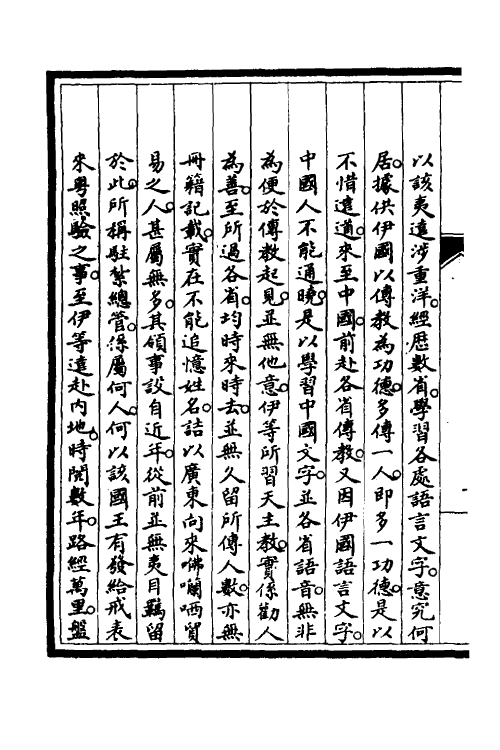 以該夷遠涉重洋。經歷數省。學習各處語言文字。意究何
居。據供伊國以傳教為功德。多傳一人。即多一功德。是以
不惜遠道。來至中國。前赴各省傳教。又因伊國語言文字。
中國人不能通曉。是以學習中國文字。並各省語音。無非
為便於傳教起見。並無他意。伊等所習天主教。實係勸人
為善。至所過各省。均時來時去。並無久留所傳人數。亦無
冊籍記載。實在不能追憶姓名。詰以廣東向來咈囒哂貿
易之人。甚屬無多。其領事設自近年。從前並無夷目羈留
於此。所稱駐紮總管。係屬何人。何以該國王有發給戒表
來粵照驗之事。至伊等遠赴內地。時閱數年。路經萬里。盤